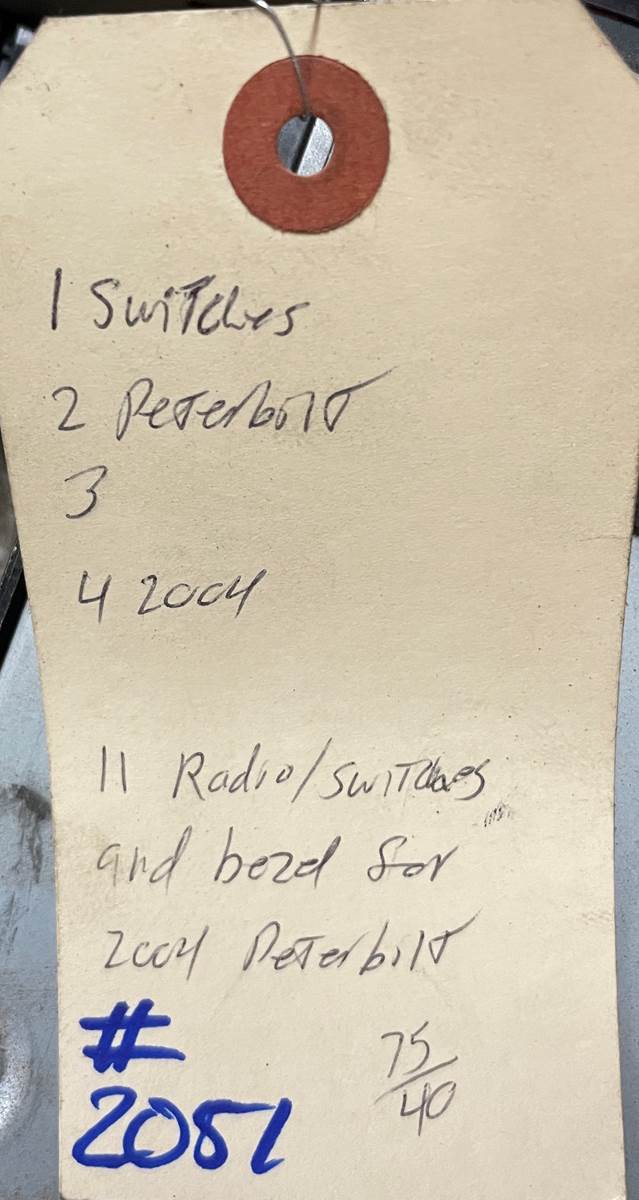 1 Switches
2 Peterbilt
3
4 2004
11 Radio/switches
and bezel for
2004 Peterbilt
#
2051
75/40